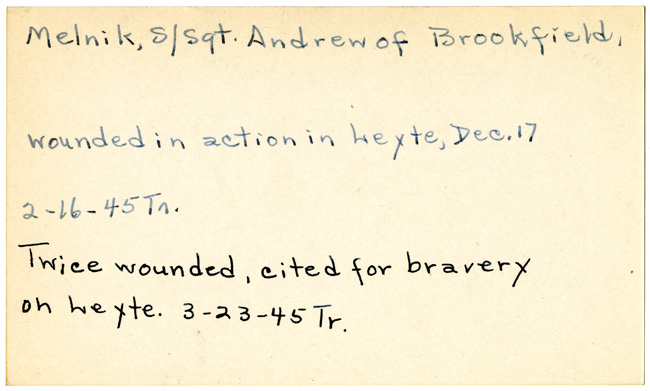 Melnik, S/Sgt. Andrew of Brookfield,
wounded in action in Leyte, Dec. 17
2-16-45 Tr.
Twice wounded, cited for bravery
on Leyte. 3-23-45 Tr.